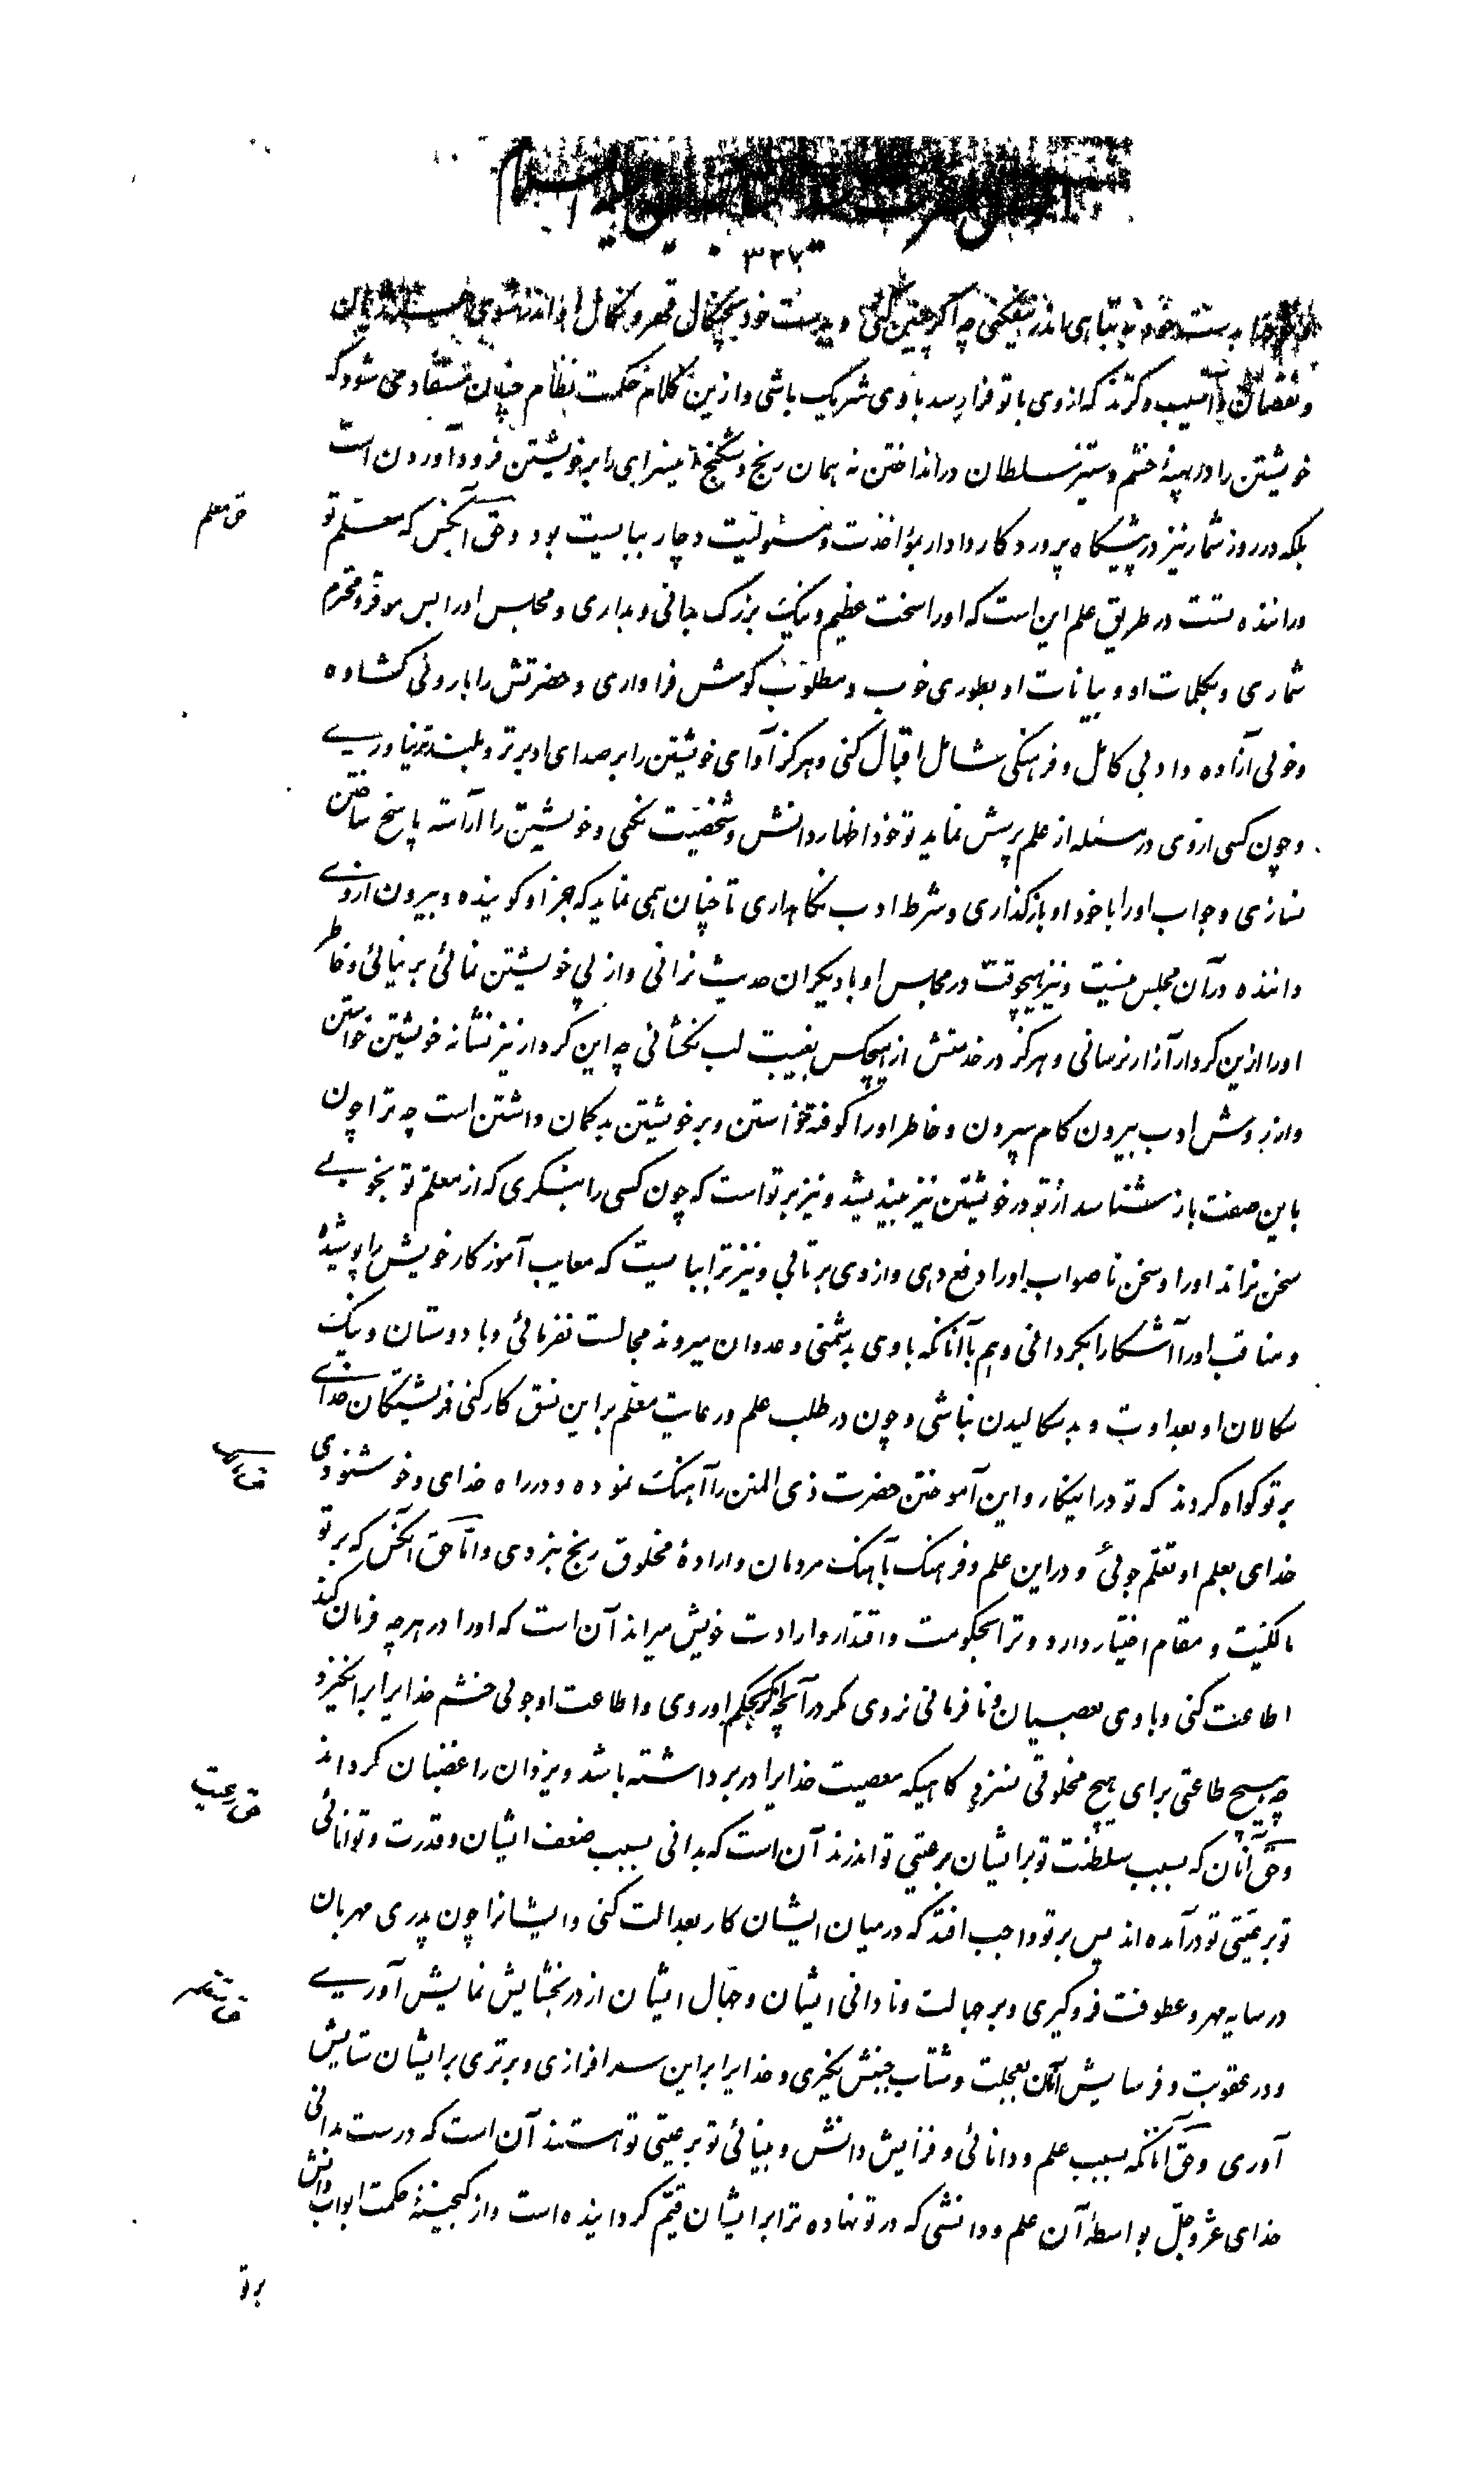 ۳۲۷
بدست خود به تباهی اندر نیفکنی چه اگر چنین کنی و بدست خود بچنگال قهر و نکال او اندر شوی
و نقصان و آسیب و گزند که از وی با تو فرا رسد با وی شریک باشی و ازین کلام حکمت نظام چنان مستفاد می شود که
خویشتن را در پهنهٔ خشم و ستیز سلطان در انداختن نه همان رنج و شکنج اینسرای را بر خویشتن فرود آوردن است
بلکه در روز شمار نیز در پیشگاه پروردگار دادار بمؤاخذت و مسئولیت دچار ببایست بود وحق آنکس که معلم تو
حق معلم
و راننده تست در طریق علم این است که او را سخت عظیم و نیک بزرگ بدانی و بداری و مجلس او را بس موقر و محترم
شماری و بکلمات او و بیانات او بطوری خوب و مطلوب گوش فرا داری و حضرتش را با روئی گشاده
و خوئی آزاده و ادبی کامل و فرهنگی شامل اقبال کنی و هرگز آوای خویشتن را بر صدای او برتر و بلندتر نیاوری
و چون کسی از وی در مسئله از علم پرسش نماید تو خود اظهار دانش و شخصیت نکنی و خویشتن را آراسته پاسخ ساختن
نسازی و جواب او را با خود او بازگذاری و شرط ادب نگاهداری تا چنان همی نماید که جز او گوینده و بیرون از وی
داننده در آن مجلس نیست و نیز هیچوقت در مجلس او با دیگران حدیث نرانی و از پی خویشتن نمائی بر نیائی و خاطر
او را ازین کردار آزار نرسانی و هرگز در خدمتش از هیچکس بغیبت لب نگشائی چه این کردار نیز نشانه خویشتن خواستن
و از روش ادب بیرون گام سپردن و خاطر او را کوفته خواستن و بر خویشتن بدگمان داشتن است چه ترا چون
باین صفت باز شناسد از تو در خویشتن نیز بیندیشد و نیز بر تو است که چون کسی را بنگری که از معلم تو بخوبی
سخن نراند او را و سخن ناصواب او را دفع دهی و از وی برتابی و نیز ترا ببایست که معایب آموزگار خویش را پوشیده
و مناقب او را آشکارا بگردانی و هم با آنانکه با وی بدشمنی و عدوان میروند مجالست نفرمائی و با دوستان و نیک
سگالان او بعداوت و بد سگالیدن نباشی و چون در طلب علم و رعایت معلم بر این نسق کار کنی فرشتگان خدای
بر تو گواه گردند که تو در اینکار و این آموختن حضرت ذی المنن را آهنگ نموده و در راه خدای و خوشنودی
خدای بعلم او تعلم جوئی و در این علم و فرهنگ بآهنگ مردمان و ارادهٔ مخلوق رنج نبردی و اما حق آنکس که بر تو
مالکیت و مقام اختیار دارد و ترا بحکومت و اقتدار و ارادت خویش میراند آن است که او را در هر چه فرمان کند
اطاعت کنی و با وی بعصیان و نافرمانی نروی مگر در آنچه اگر بحکم او روی و اطاعت او جوئی خشم خدایرا برانگیزد
چه هیچ طاعتی برای هیچ مخلوقی نسزد گاهیکه معصیت خدایرا در بر داشته باشد و یزدان را غضبان گرداند
حق رعیت
و حق آنان که بسبب سلطنت تو بر ایشان برعیتی تو اندرند آن است که بدانی بسبب ضعف ایشان و قدرت و توانائی
تو برعیتی تو در آمده اند پس بر تو واجب افتد که در میان ایشان کار بعدالت کنی و ایشانرا چون پدری مهربان
در سایه مهر و عطوفت فرو گیری و بر جهالت و نادانی ایشان و جهال ایشان از در بخشایش نمایش آوری
و در عقوبت و فرسایش آنان بعجلت و شتاب جنبش نگیری و خدایرا بر این سرافرازی و برتری بر ایشان ستایش
آوری و حق آنانکه بسبب علم و دانائی و فزایش دانش و بینائی تو برعیتی تو هستند آن است که درست بدانی
خدای عز و جل بواسطهٔ آن علم و دانشی که در تو نهاده ترا بر ایشان قیم گردانیده است و از گنجینهٔ حکمت ابواب دانش
بر تو